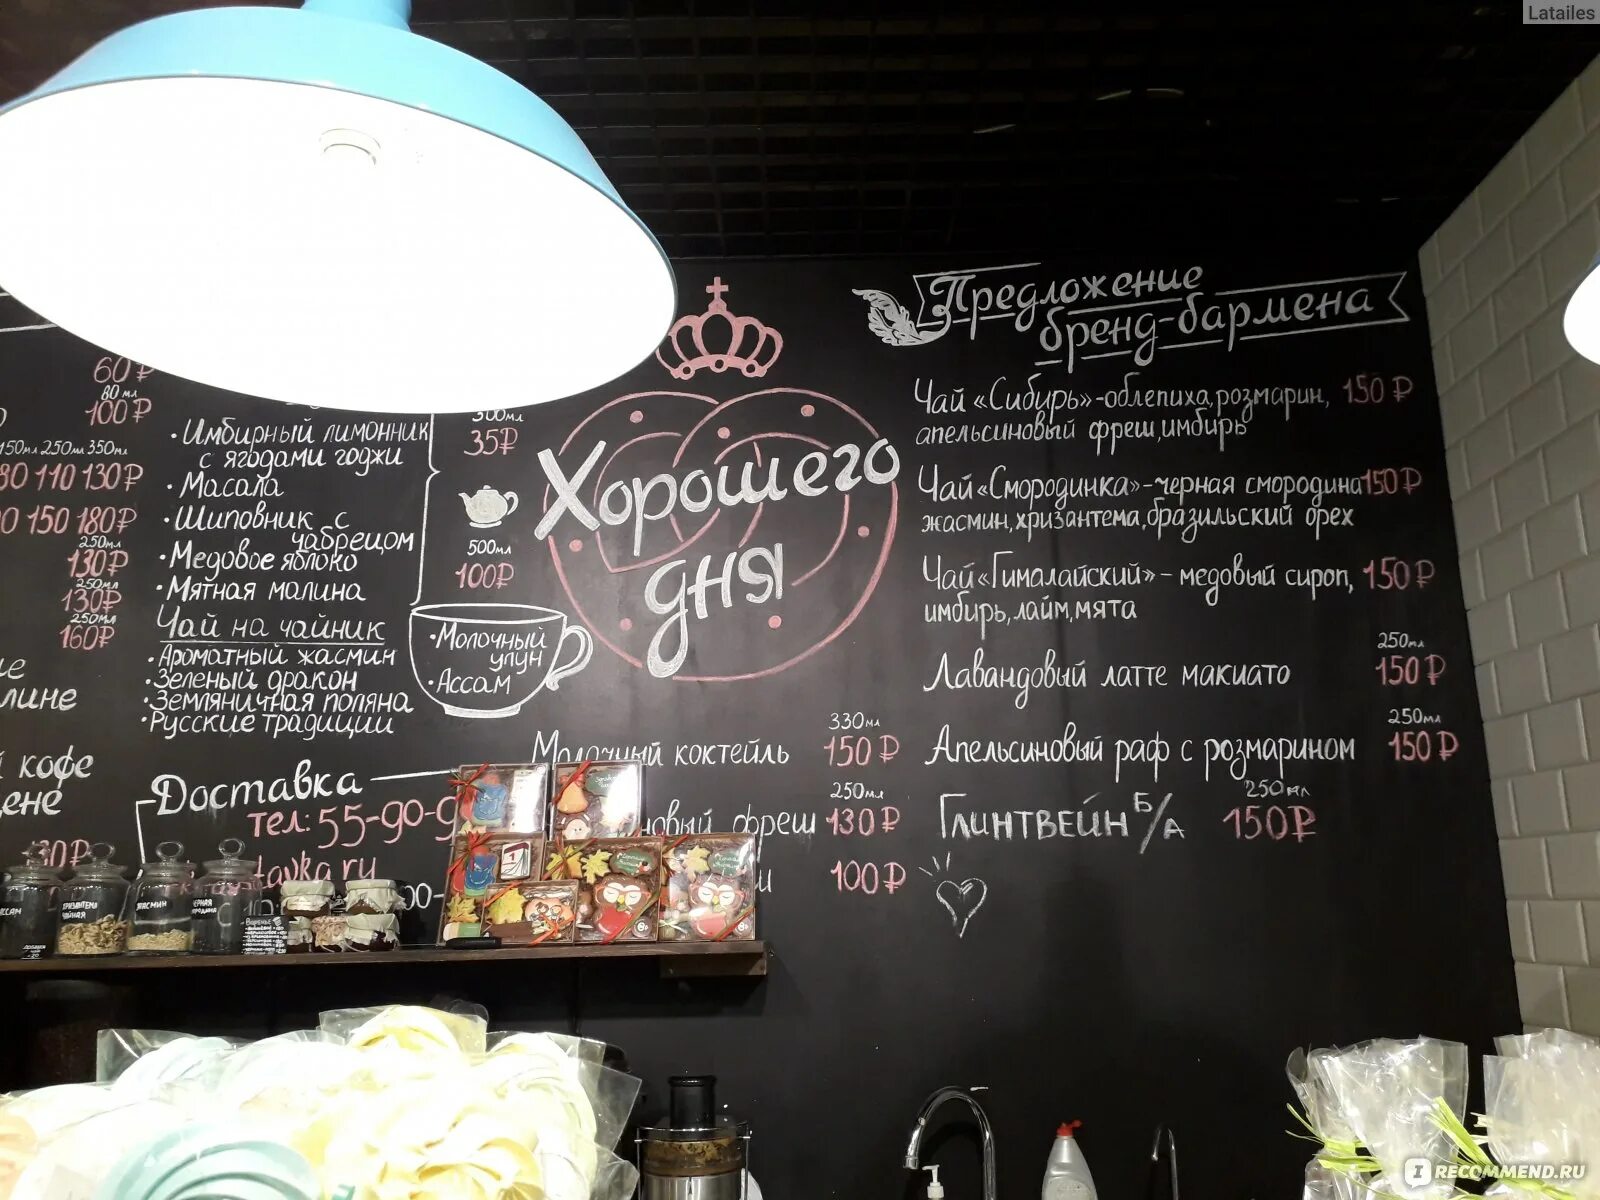 Latailes
60₽
80 мл
100₽
150мл 250мл 350мл
110 130₽
150 180₽
250мл
130₽
250мл
130₽
250мл
160₽
кофе
• Имбирный лимонник
с ягодами годжи
• Масала
• Шиповник с
чабрецом
• Медовое яблоко
• Мятная малина
Чай на чайник
• Ароматный жасмин
• Зеленый дракон
• Земляничная поляна
• Русские традиции
300мл
35₽
500мл
100₽
• Молочный
улун
• Ассам
Доставка
тел: 55-90-
Хорошего
дня
330мл
Молочный коктейль 150₽
250мл
фреш 130₽
100₽
Предложение
бренд-бармена
Чай «Сибирь» - облепиха, розмарин, 150₽
апельсиновый фреш, имбирь
Чай «Смородинка» - черная смородина 150₽
жасмин, хризантема, бразильский орех
Чай «Гималайский» - медовый сироп, 150₽
имбирь, лайм, мята
250мл
Лавандовый латте макиато 150₽
250мл
Апельсиновый раф с розмарином 150₽
250мл
Глинтвейн Б/А 150₽
хризантема
чайная
жасмин
Варенье
IRECOMMEND.RU